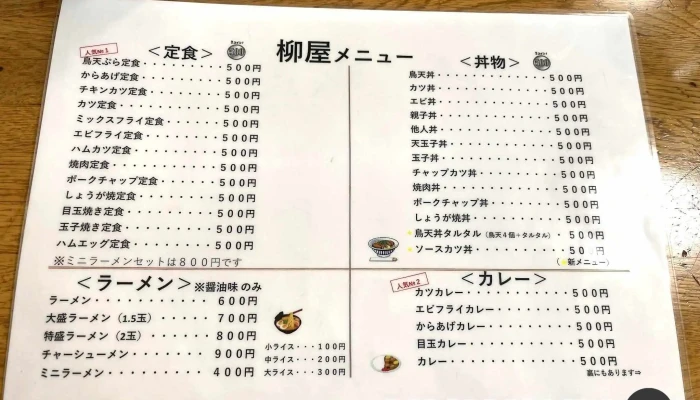 柳屋メニュー
＜定食＞
人気No1
鳥天ぷら定食・・・・・・・・500円
からあげ定食・・・・・・・・500円
チキンカツ定食・・・・・・・500円
カツ定食・・・・・・・・・・500円
ミックスフライ定食・・・・・500円
エビフライ定食・・・・・・・500円
ハムカツ定食・・・・・・・・500円
焼肉定食・・・・・・・・・・500円
ポークチャップ定食・・・・・500円
しょうが焼定食・・・・・・・500円
目玉焼き定食・・・・・・・・500円
玉子焼き定食・・・・・・・・500円
ハムエッグ定食・・・・・・・500円
※ミニラーメンセットは800円です
＜丼物＞
鳥天丼・・・・・・・・・・・500円
カツ丼・・・・・・・・・・・500円
エビ丼・・・・・・・・・・・500円
親子丼・・・・・・・・・・・500円
他人丼・・・・・・・・・・・500円
天玉子丼・・・・・・・・・・500円
玉子丼・・・・・・・・・・・500円
チャップカツ丼・・・・・・・500円
焼肉丼・・・・・・・・・・・500円
ポークチャップ丼・・・・・・500円
しょうが焼丼・・・・・・・・500円
鳥天丼タルタル（鳥天4個＋タルタル）・500円
ソースカツ丼・・・・・・・・50 円
（ 新メニュー）
＜ラーメン＞※醤油味のみ
ラーメン・・・・・・・・・600円
大盛ラーメン（1.5玉）・・・・700円
特盛ラーメン（2玉）・・・・・800円
チャーシューメン・・・・・・900円
ミニラーメン・・・・・・・・400円
小ライス・・・100円
中ライス・・・200円
大ライス・・・300円
＜カレー＞
人気No2
カツカレー・・・・・・・・・500円
エビフライカレー・・・・・・500円
からあげカレー・・・・・・・500円
目玉カレー・・・・・・・・・500円
カレー・・・・・・・・・・・500円
裏にもあります⇒